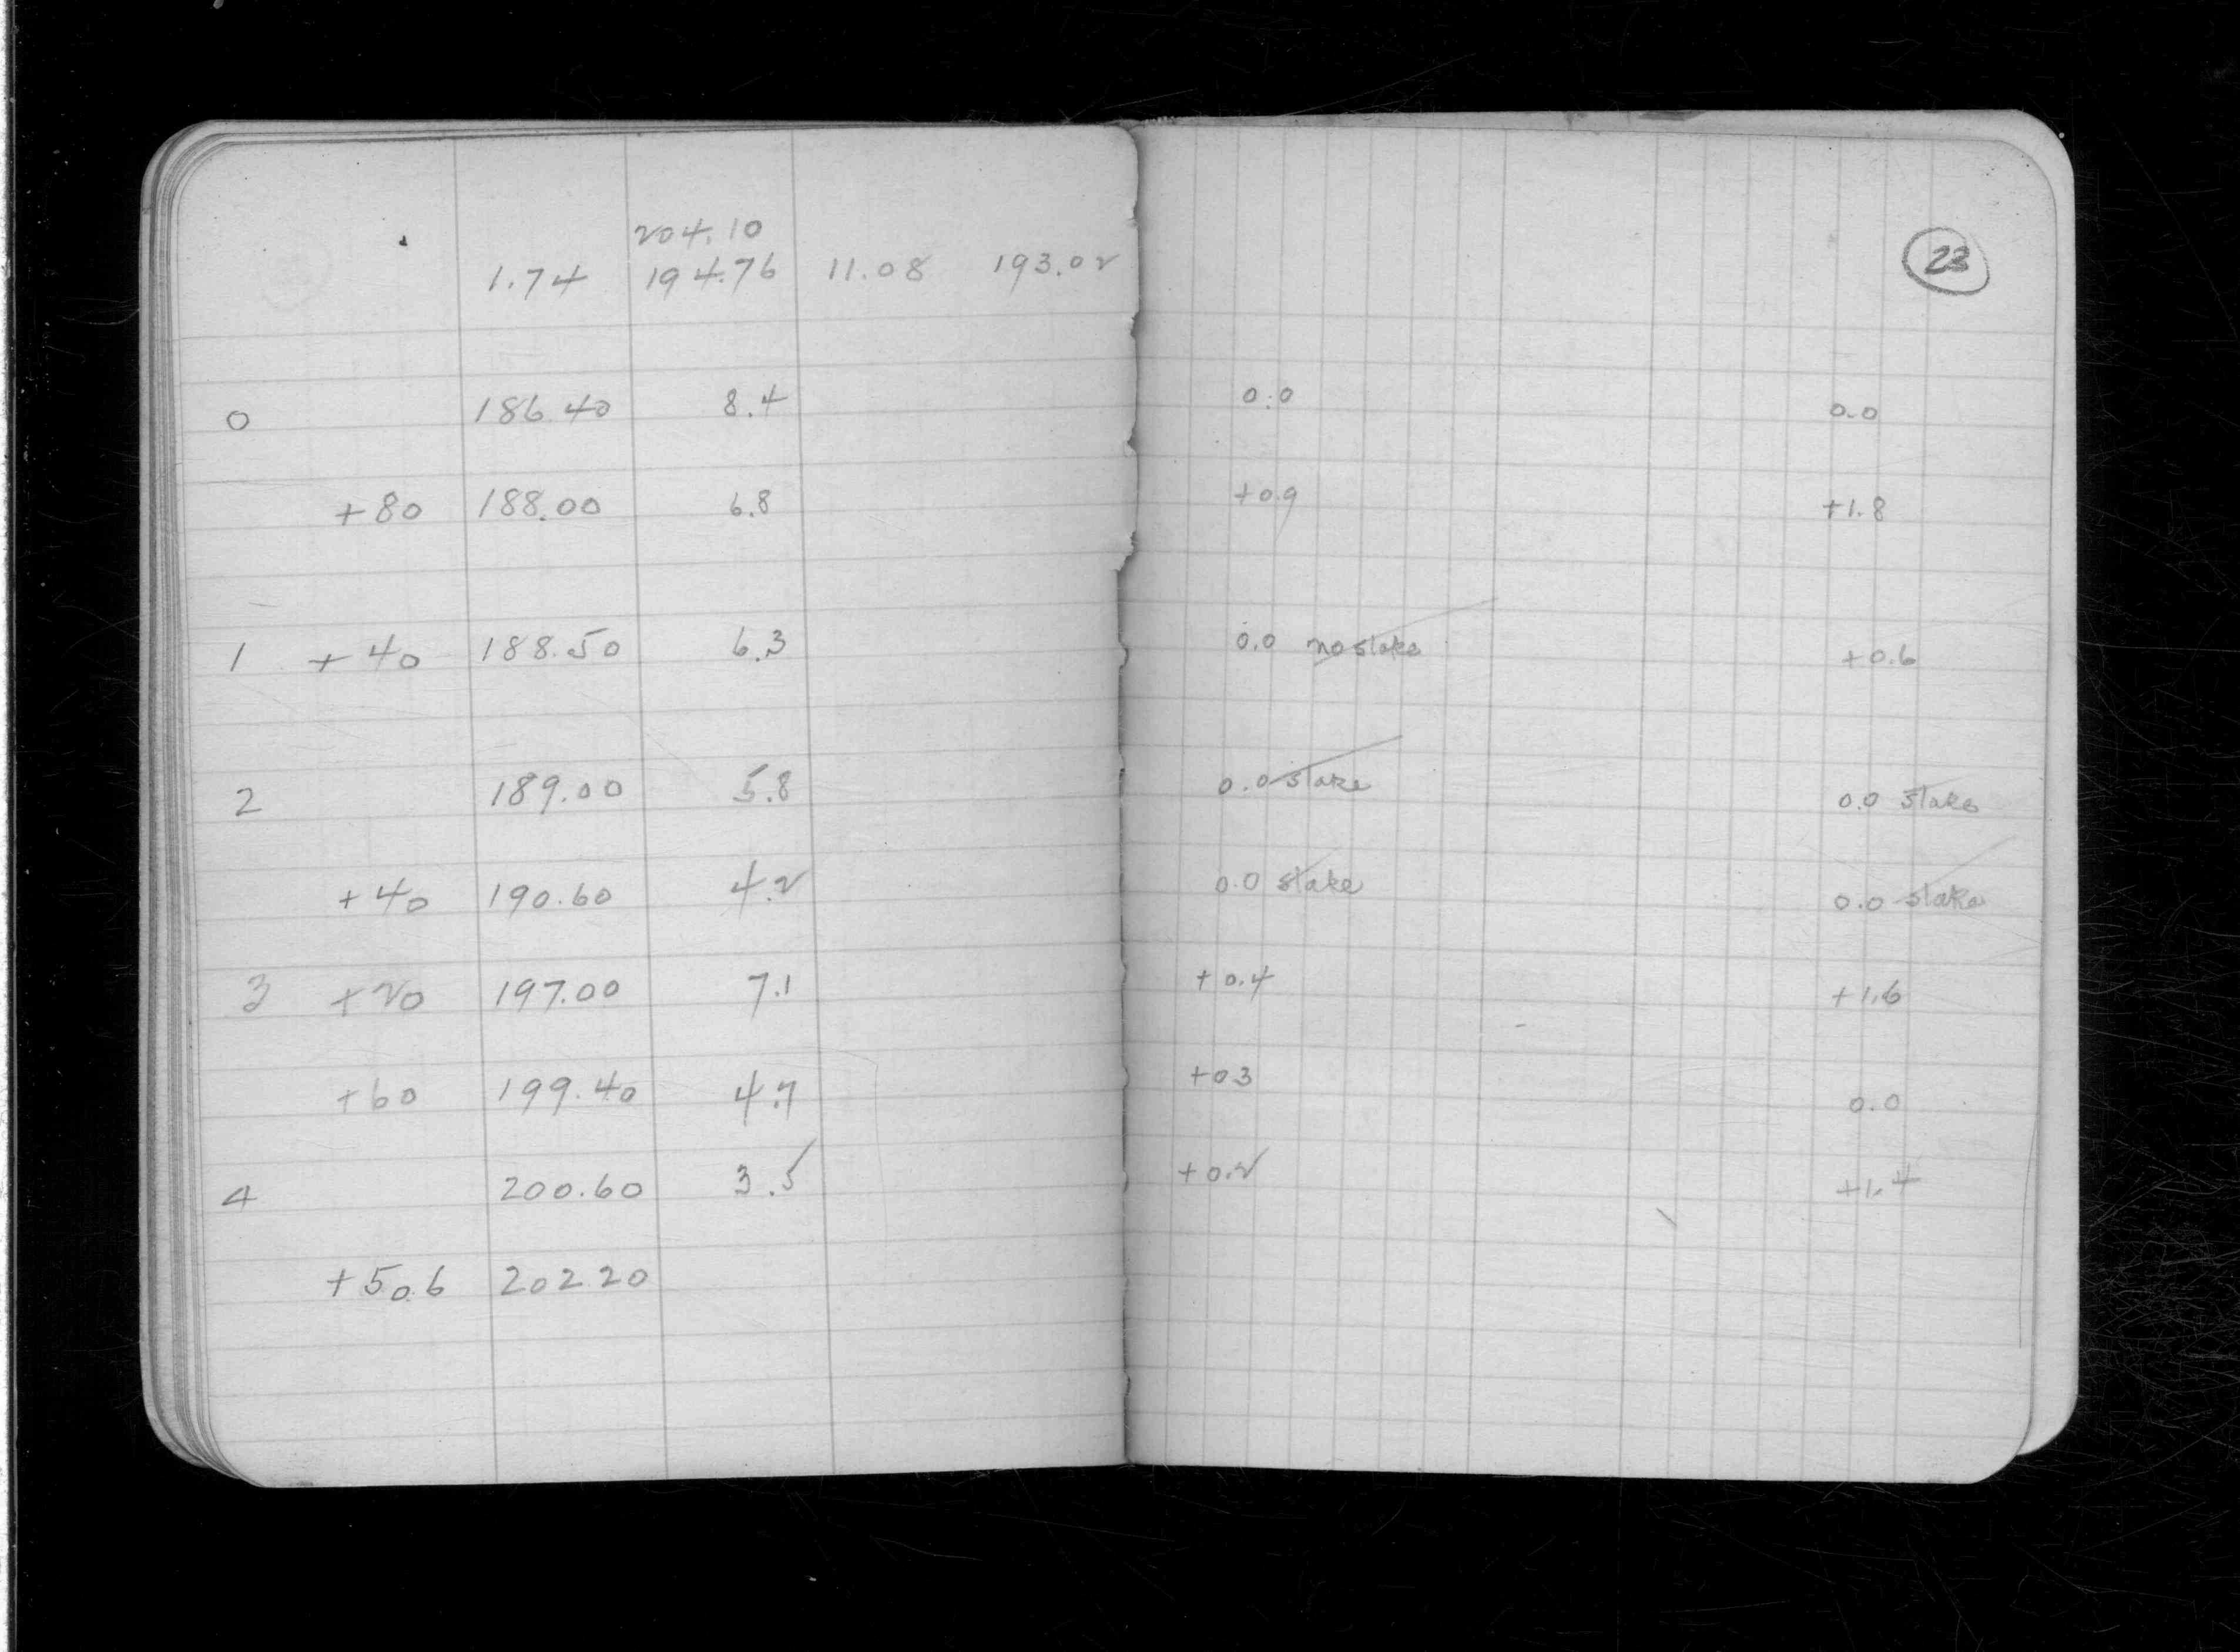 204.10
1.74 194.76 11.08 193.02
0 186.40 8.4
+80 188.00 6.8
1 +40 188.50 6.3
2 189.00 5.8
+40 190.60 4.2
3 +20 197.00 7.1
+60 199.40 4.7
4 200.60 3.5
+50.6 202 20
23
0.0 0.0
+0.9 +1.8
0.0 no stake +0.6
0.0 stake 0.0 stake
0.0 stake 0.0 stake
+0.4 +1.6
+03 0.0
+0.2 +1.4